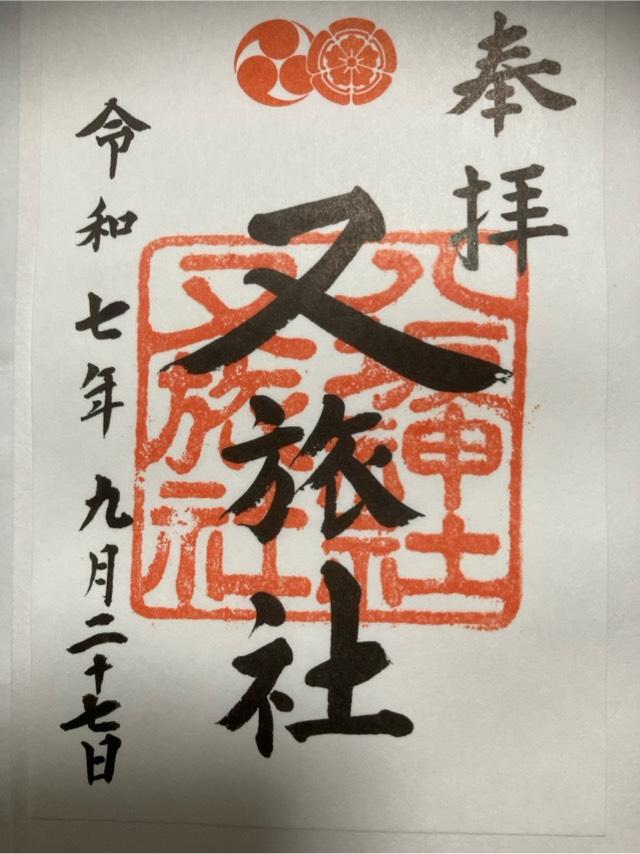 奉拝
又旅社
八坂神社
又旅社
令和七年九月二十七日